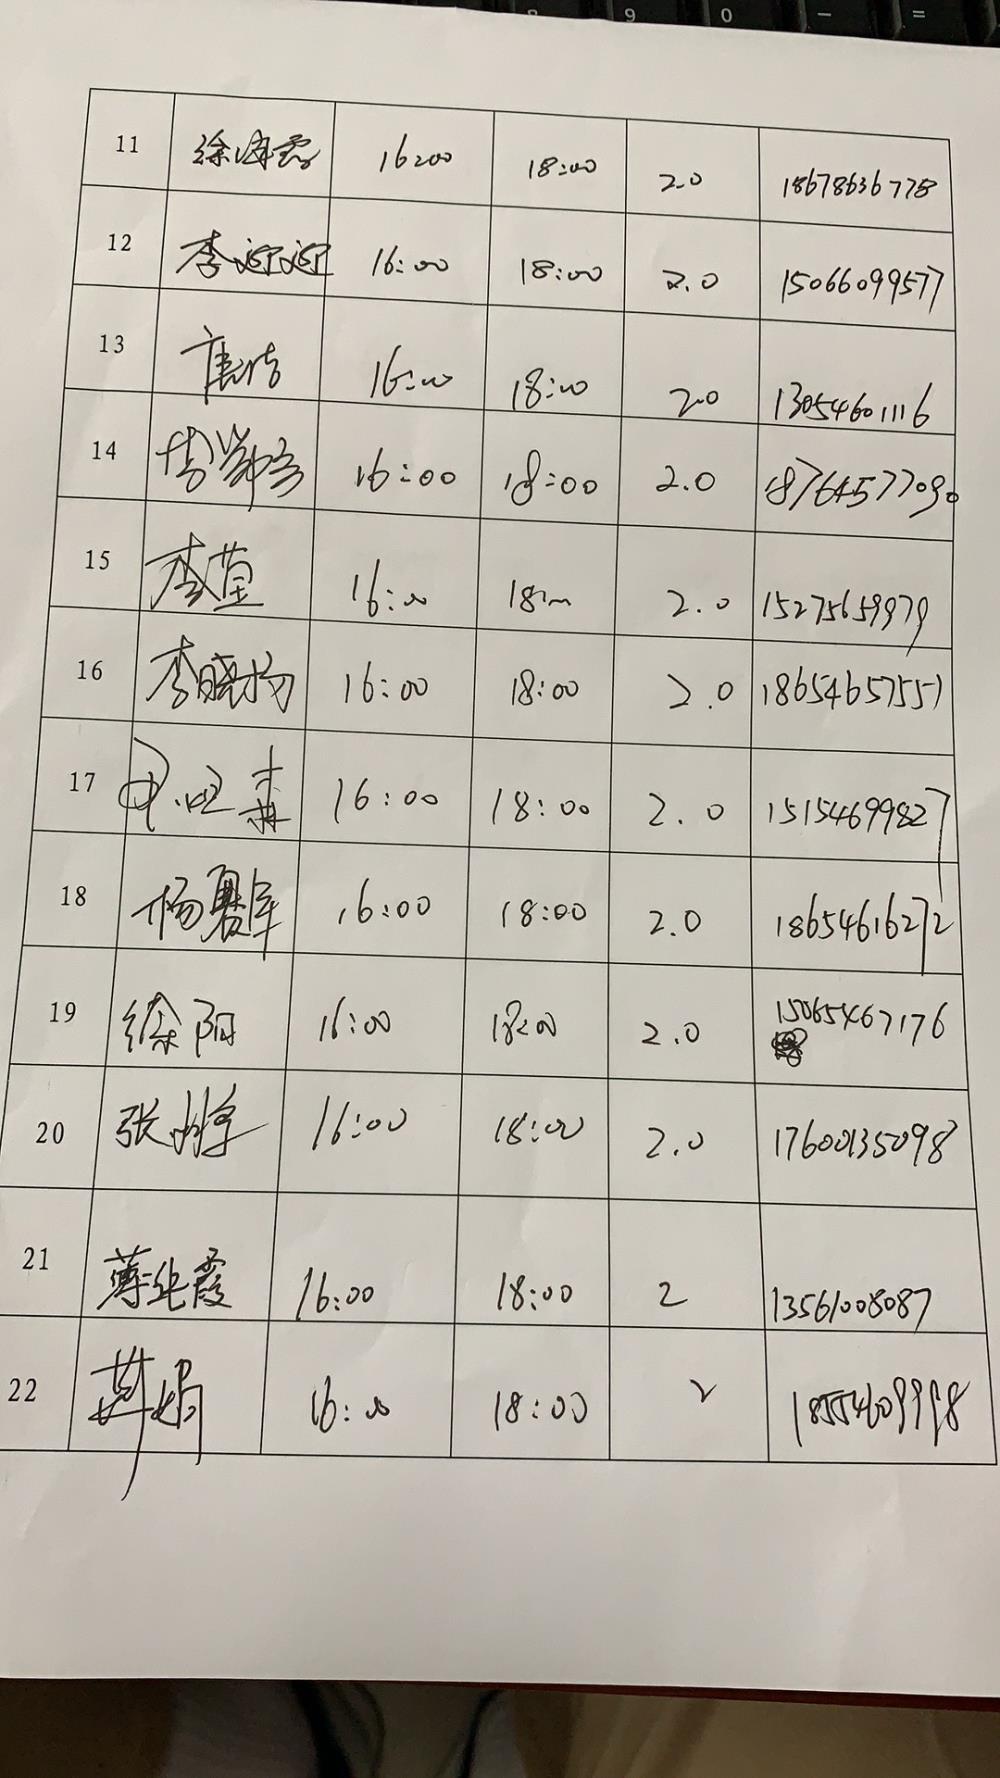 9 0 - =
11 徐 16:00 18:00 2.0 18678636778
12 李迎迎 16:00 18:00 2.0 15066099577
13 唐洁 16:00 18:00 2.0 13054601116
14 16:00 18:00 2.0 18764577090
15 李萱 16:00 18:00 2.0 15275659979
16 李晓杨 16:00 18:00 2.0 18654657557
17 16:00 18:00 2.0 15154699827
18 杨 军 16:00 18:00 2.0 18654616272
19 徐阳 16:00 18:00 2.0 15065467176
20 张 16:00 18:00 2.0 17600135098
21 薄纯霞 16:00 18:00 2 13561008087
22 娟 16:00 18:00 2 18554609998